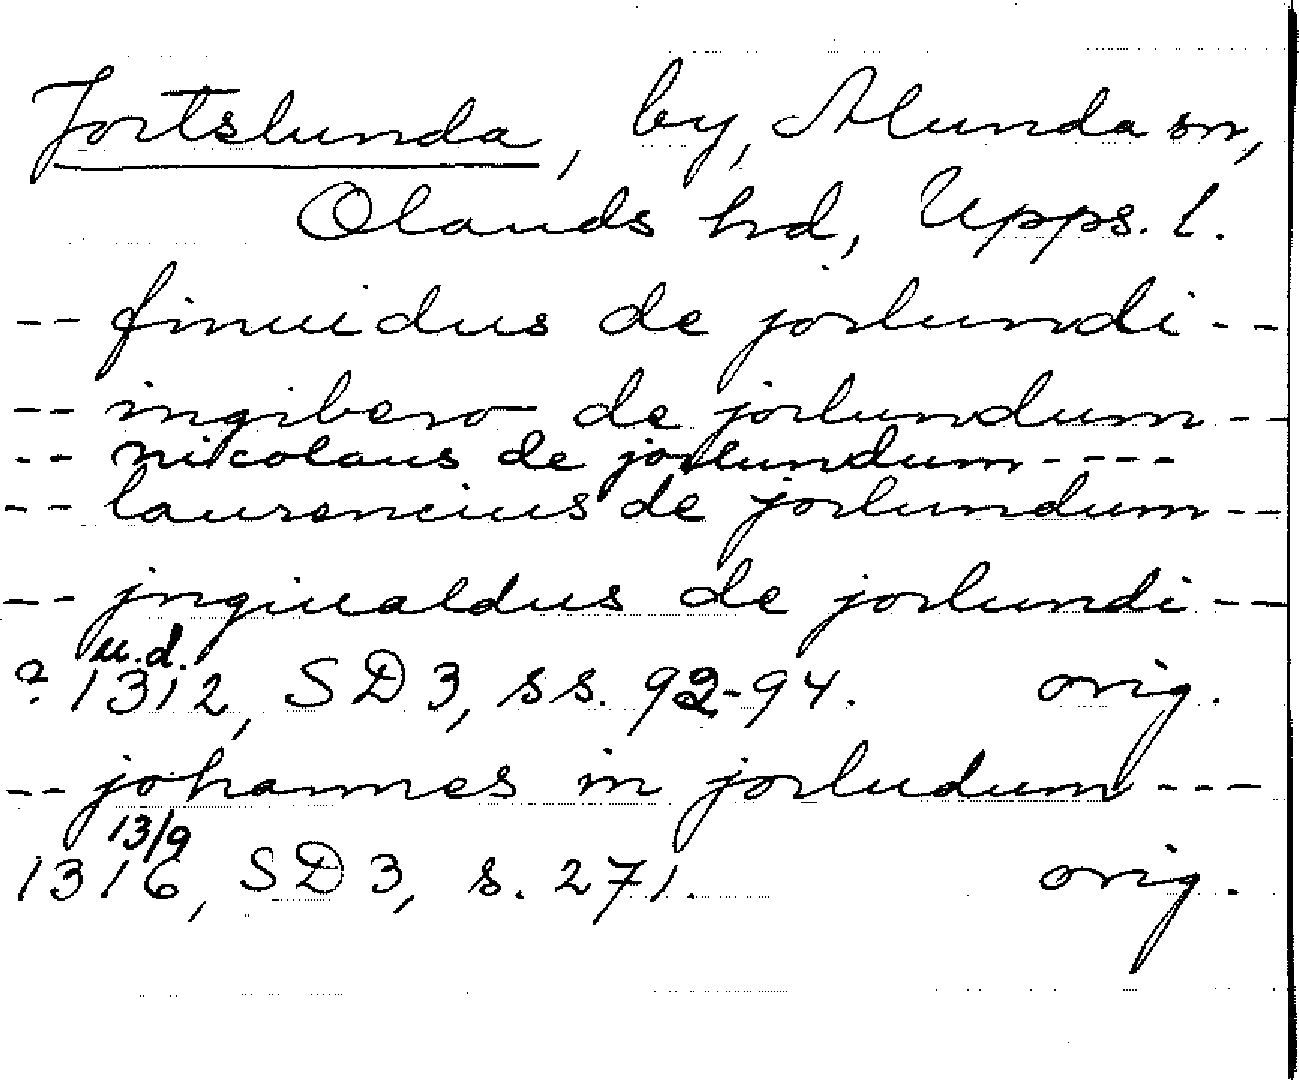 Jortslunda, by, Alunda sn,
Olands hd, Upps. l.
-- finuidus de jorlundi --
-- ingibero de jorlundum --
-- nicolaus de jorlundum ----
-- laurencius de jorlundum --
-- jngiualdus de jorlundi --
u.d.
? 1312, SD 3, ss. 92-94. orig.
-- johannes in jorludum ---
13/9
1316, SD 3, s. 271. orig.